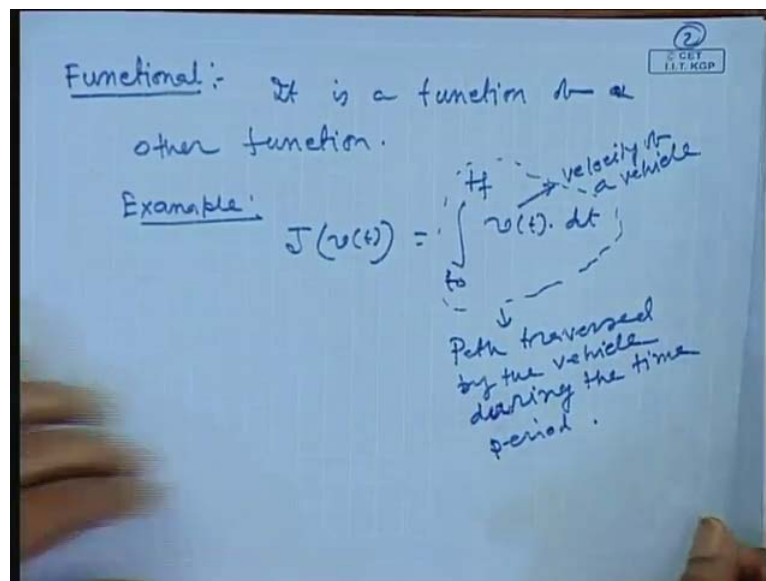 2
© CET
I.I.T. KGP
Functional:- It is a function of a
other function.
Example:
J(v(t)) = ∫_{t0}^{tf} v(t). dt
velocity of
a vehicle
Path traversed
by the vehicle
during the time
period.